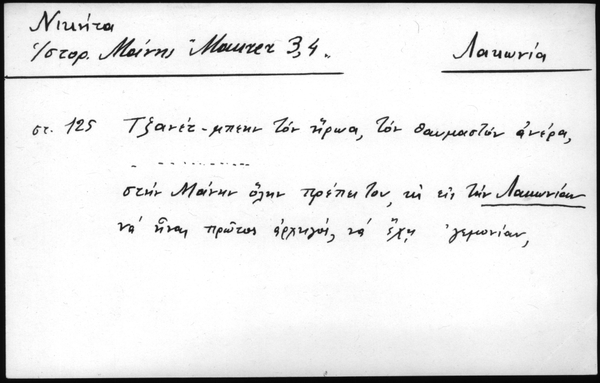 Νικήτα
Ἱστορ. Μάνης Maurer 3,4.
Λακωνία
στ. 125 Τζανέτ-μπεην τὸν ἥρωα, τὸν θαυμαστὸν ἀνέρα,
. ...........
στὴν Μάνην ὅλην πρέπει του, κι εἰς τὴν Λακωνίαν
νὰ ἦναι πρῶτος ἀρχηγός, νὰ ἔχη ἡγεμονίαν,